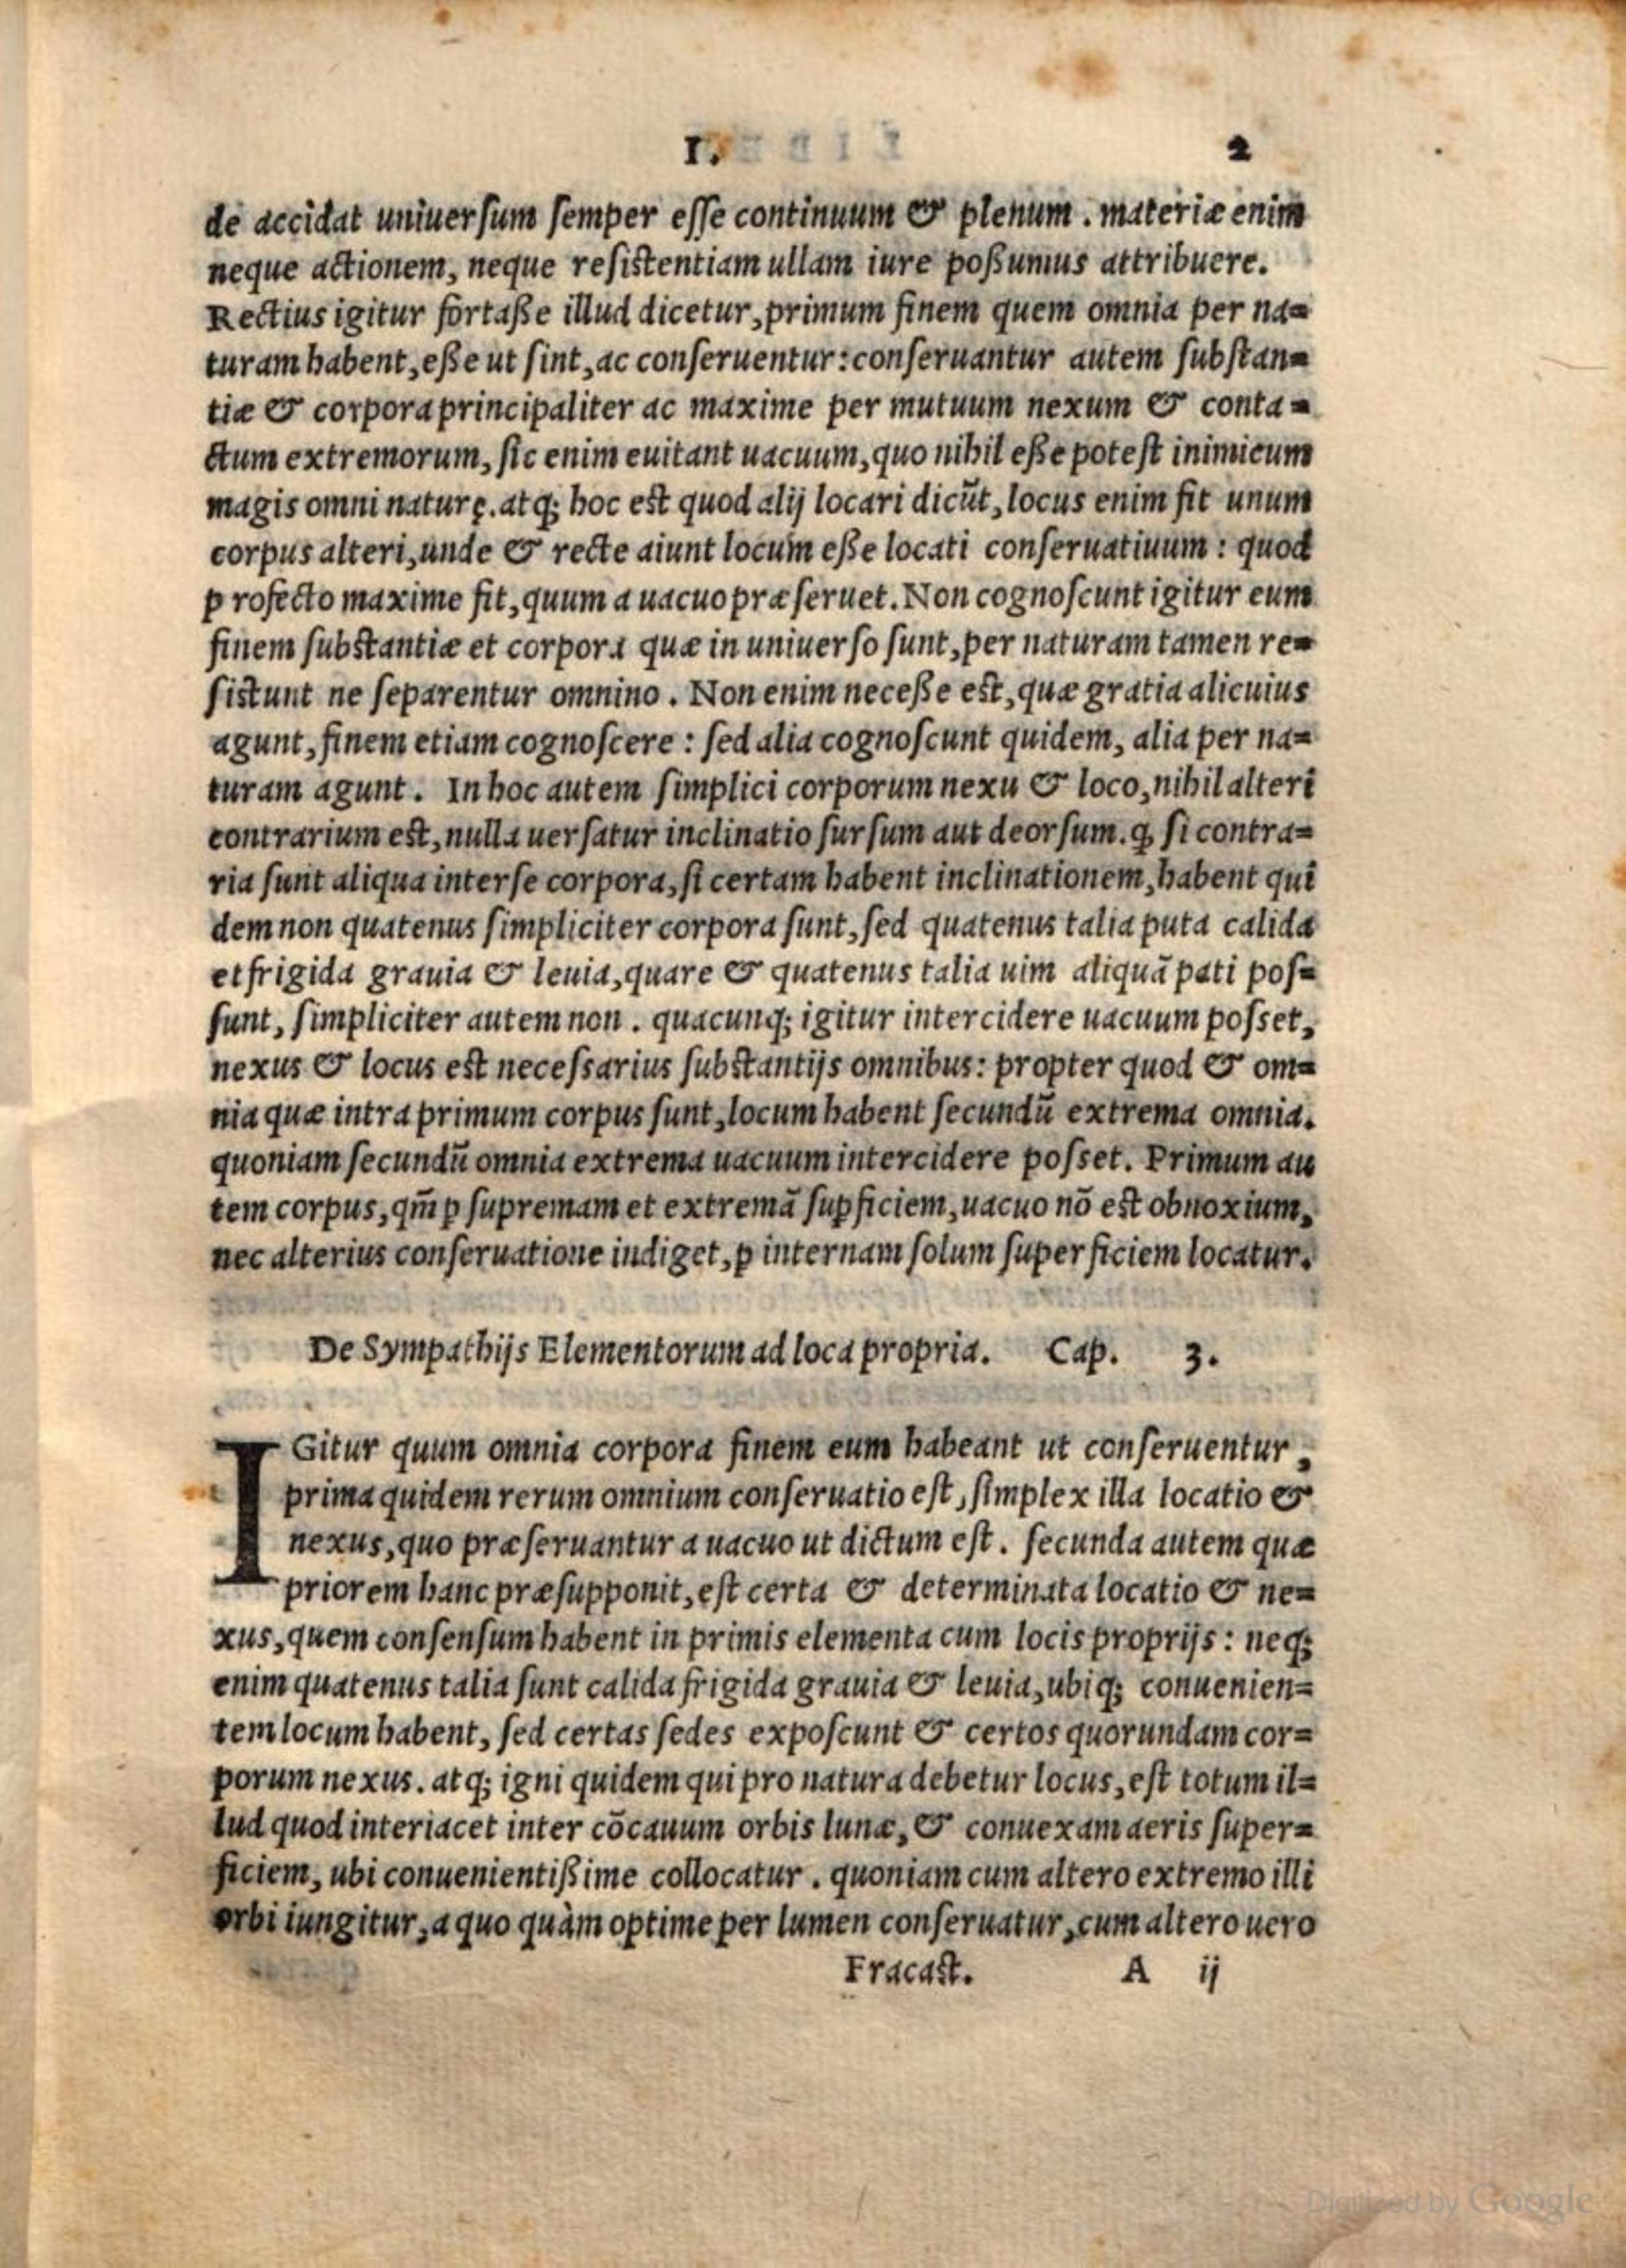 I. 2
de accidat uniuersum semper esse continuum & plenum. materiæ enim
neque actionem, neque resistentiam ullam iure poßumus attribuere.
Rectius igitur fortaße illud dicetur, primum finem quem omnia per na=
turam habent, eße ut sint, ac conseruentur: conseruantur autem substan=
tiæ & corpora principaliter ac maxime per mutuum nexum & conta=
ctum extremorum, sic enim euitant uacuum, quo nihil eße potest inimicum
magis omni naturę. atq; hoc est quod alij locari dicũt, locus enim fit unum
corpus alteri, unde & recte aiunt locum eße locati conseruatiuum: quod
profecto maxime fit, quum a uacuo præseruet. Non cognoscunt igitur eum
finem substantiæ et corpora quæ in uniuerso sunt, per naturam tamen re=
sistunt ne separentur omnino. Non enim neceße est, quæ gratia alicuius
agunt, finem etiam cognoscere: sed alia cognoscunt quidem, alia per na=
turam agunt. In hoc autem simplici corporum nexu & loco, nihil alteri
contrarium est, nulla uersatur inclinatio sursum aut deorsum. ꝙ si contra=
ria sunt aliqua inter se corpora, si certam habent inclinationem, habent qui
dem non quatenus simpliciter corpora sunt, sed quatenus talia puta calida
et frigida grauia & leuia, quare & quatenus talia uim aliquã pati pos=
sunt, simpliciter autem non. quacunq; igitur intercidere uacuum posset,
nexus & locus est necessarius substantijs omnibus: propter quod & om=
nia quæ intra primum corpus sunt, locum habent secundũ extrema omnia.
quoniam secundũ omnia extrema uacuum intercidere posset. Primum au
tem corpus, qm̃ ꝑ supremam et extremã suꝑficiem, uacuo nõ est obnoxium,
nec alterius conseruatione indiget, ꝑ internam solum superficiem locatur.
De Sympathijs Elementorum ad loca propria. Cap. 3.
IGitur quum omnia corpora finem eum habeant ut conseruentur,
prima quidem rerum omnium conseruatio est, simplex illa locatio &
nexus, quo præseruantur a uacuo ut dictum est. secunda autem quæ
priorem hanc præsupponit, est certa & determinata locatio & ne=
xus, quem consensum habent in primis elementa cum locis proprijs: neq;
enim quatenus talia sunt calida frigida grauia & leuia, ubiq; conuenien=
tem locum habent, sed certas sedes exposcunt & certos quorundam cor=
porum nexus. atq; igni quidem qui pro natura debetur locus, est totum il=
lud quod interiacet inter cõcauum orbis lunæ, & conuexam aeris super=
ficiem, ubi conuenientißime collocatur. quoniam cum altero extremo illi
orbi iungitur, a quo quàm optime per lumen conseruatur, cum altero uero
Fracast. A ij
Digitized by Google